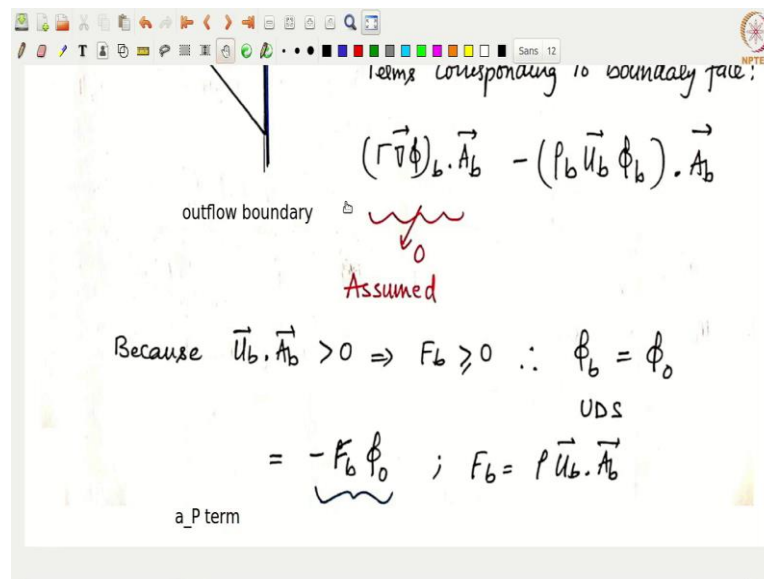 Sans 12
NPTE
Terms corresponding to boundary face:
(Γ∇⃗ϕ)_b . A⃗_b − (ρ_b U⃗_b ϕ_b) . A⃗_b
outflow boundary
0
Assumed
Because U⃗_b . A⃗_b > 0 ⇒ F_b ⩾ 0 ∴ ϕ_b = ϕ_0
UDS
= − F_b ϕ_0 ; F_b = ρ U⃗_b . A⃗_b
a_P term